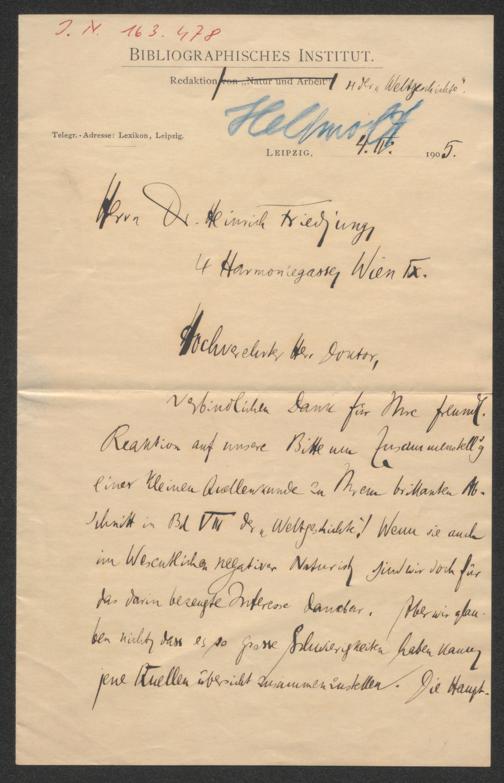 J. N. 163.478
BIBLIOGRAPHISCHES INSTITUT.
Redaktion von „Natur und Arbeit" „der „Weltgeschichte".
Helmolt
Telegr.-Adresse: Lexikon, Leipzig.
LEIPZIG, 4. IV. 1905.
Herrn Dr. Heinrich Friedjung,
4 Harmoniegasse, Wien IX.
Hochverehrter Herr Doktor,
Verbindlichen Dank für Ihre freundl.
Reaktion auf unsere Bitte um Zusammenstellg
einer kleinen Quellenkunde zu Ihrem brillanten Ab-
schnitt in Bd VIII der „Weltgeschichte"! Wenn sie auch
im Wesentlichen negativer Natur ist, sind wir doch für
das darin bezeugte Interesse dankbar. Aber wir glau-
ben nicht, dass es so grosse Schwierigkeiten haben kann,
jene Quellenübersicht zusammenzustellen. Die Haupt-